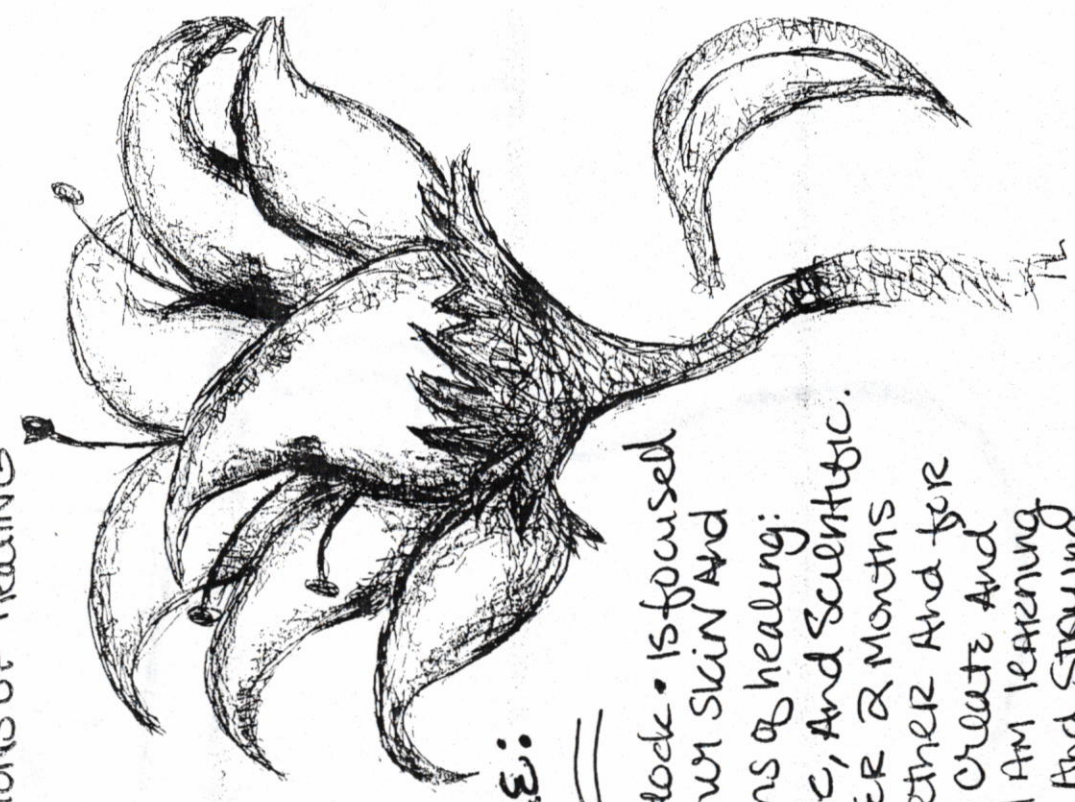 IONS OF HEALING
E:
lock • Is focused
wn skin And
ns of healing:
c, And Scientific.
ER 2 Months
other And for
Create And
I Am leARNing
And